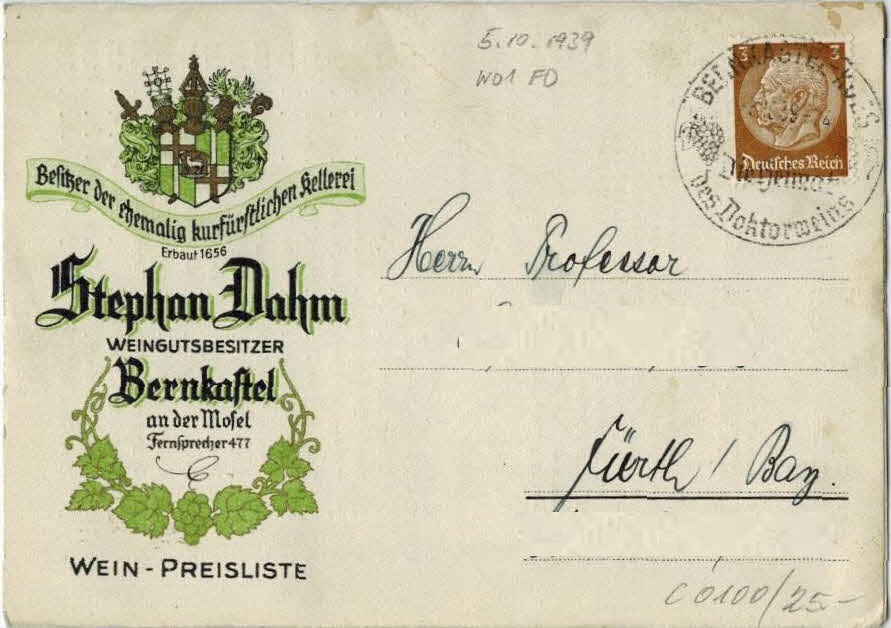 5.10.1939
W01 FD
3 3
Deutsches Reich
BERNKASTEL-KUES
Die Heimat
des Doktorweins
Besitzer der ehemalig kurfürstlichen Kellerei
Erbaut 1656
Stephan Dahm
WEINGUTSBESITZER
Bernkastel
an der Mosel
Fernsprecher 477
WEIN-PREISLISTE
Herrn Professor
Fürth / Bay.
C 0100/25-